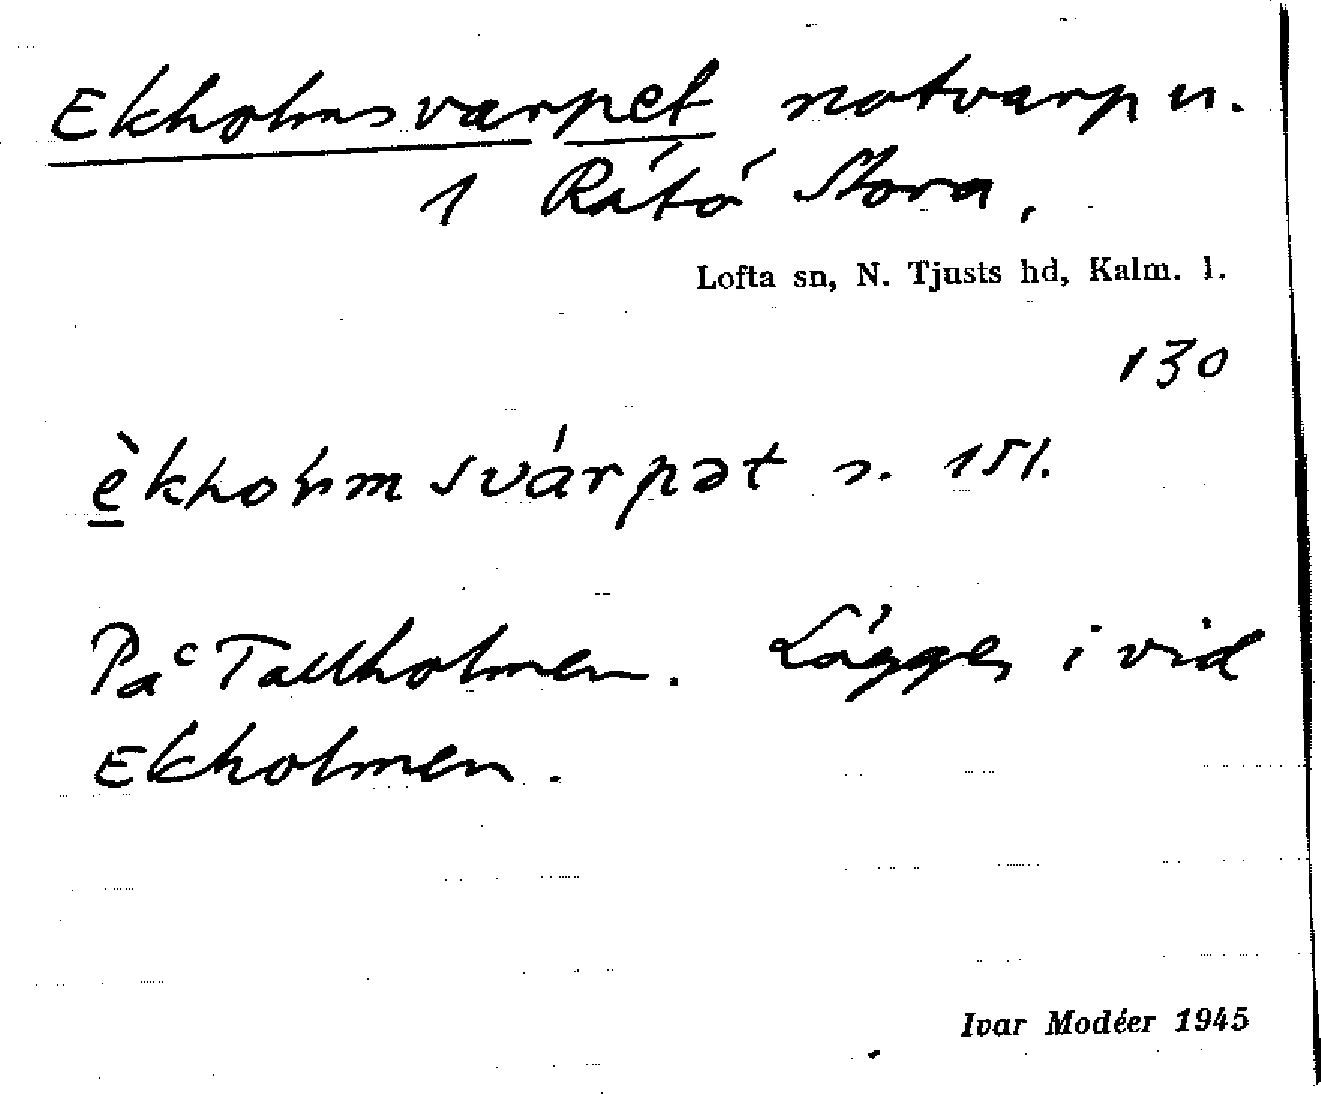 Ekholmsvarpet notvarp u.
1 Rätö Stora.
Lofta sn, N. Tjusts hd, Kalm. l.
130
èkholmsvárpət n. 151.
På Tallholmen. Lägges i vid
Ekholmen.
Ivar Modéer 1945